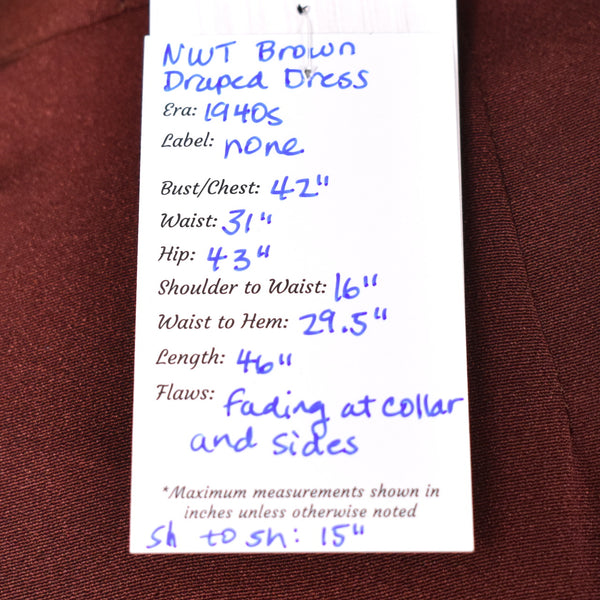 NWT Brown
Draped Dress
Era: 1940s
Label: none
Bust/Chest: 42"
Waist: 31"
Hip: 43"
Shoulder to Waist: 16"
Waist to Hem: 29.5"
Length: 46"
Flaws: fading at collar
and sides
*Maximum measurements shown in
inches unless otherwise noted
sh to sh: 15"